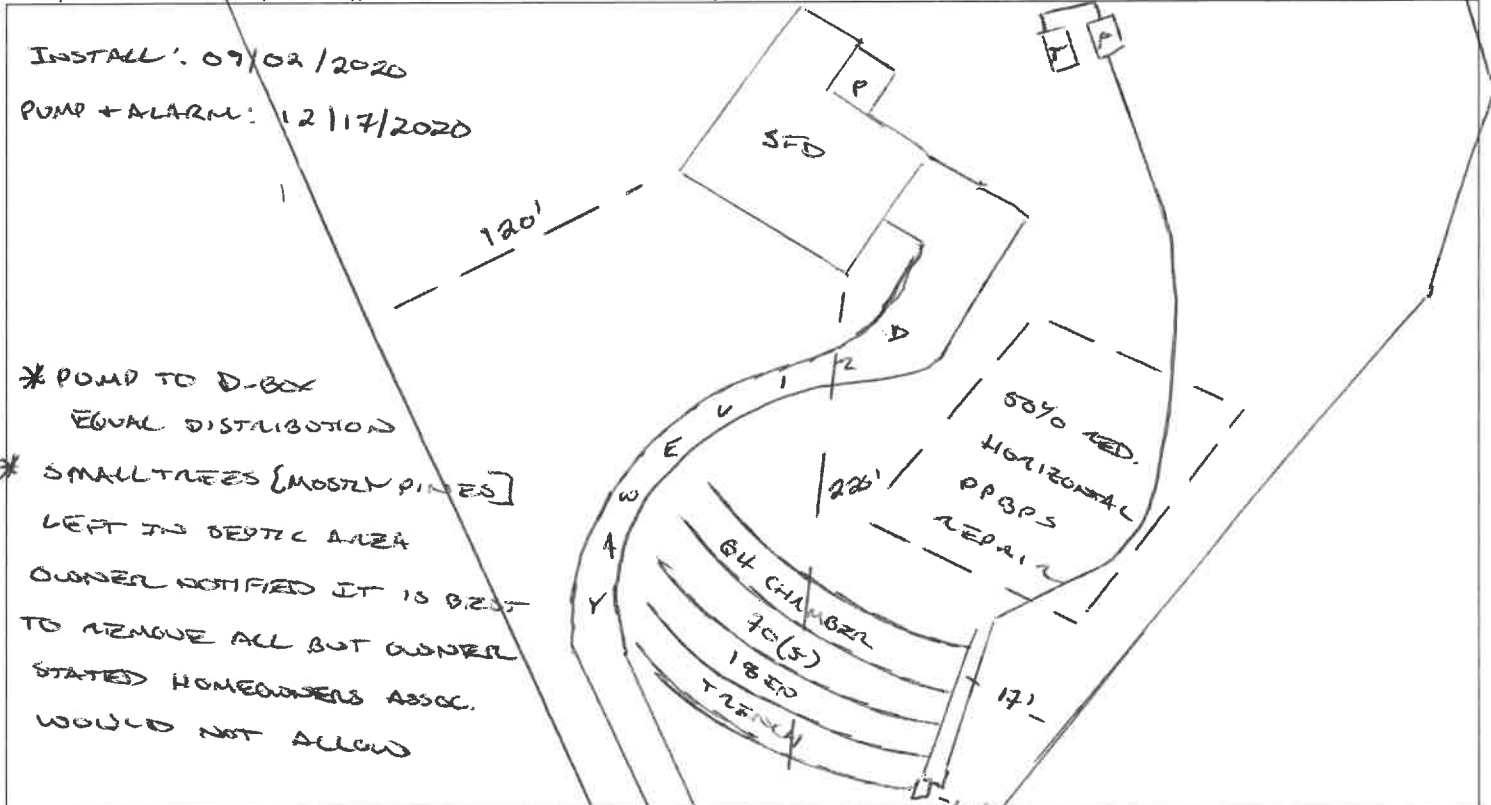 INSTALL: 09/02/2020
PUMP + ALARM: 12/17/2020
120'
* PUMP TO D-BOX
EQUAL DISTRIBUTION
* SMALL TREES [MOSTLY PINES]
LEFT IN SEPTIC AREA
OWNER NOTIFIED IT IS BEST
TO REMOVE ALL BUT OWNER
STATED HOMEOWNERS ASSOC.
WOULD NOT ALLOW
P
SFD
T
P
DRIVEWAY
50% RED.
HORIZONTAL
PPBPS
REPAIR
CHAMBER
70(5)
18 IN
TRENCH
17'